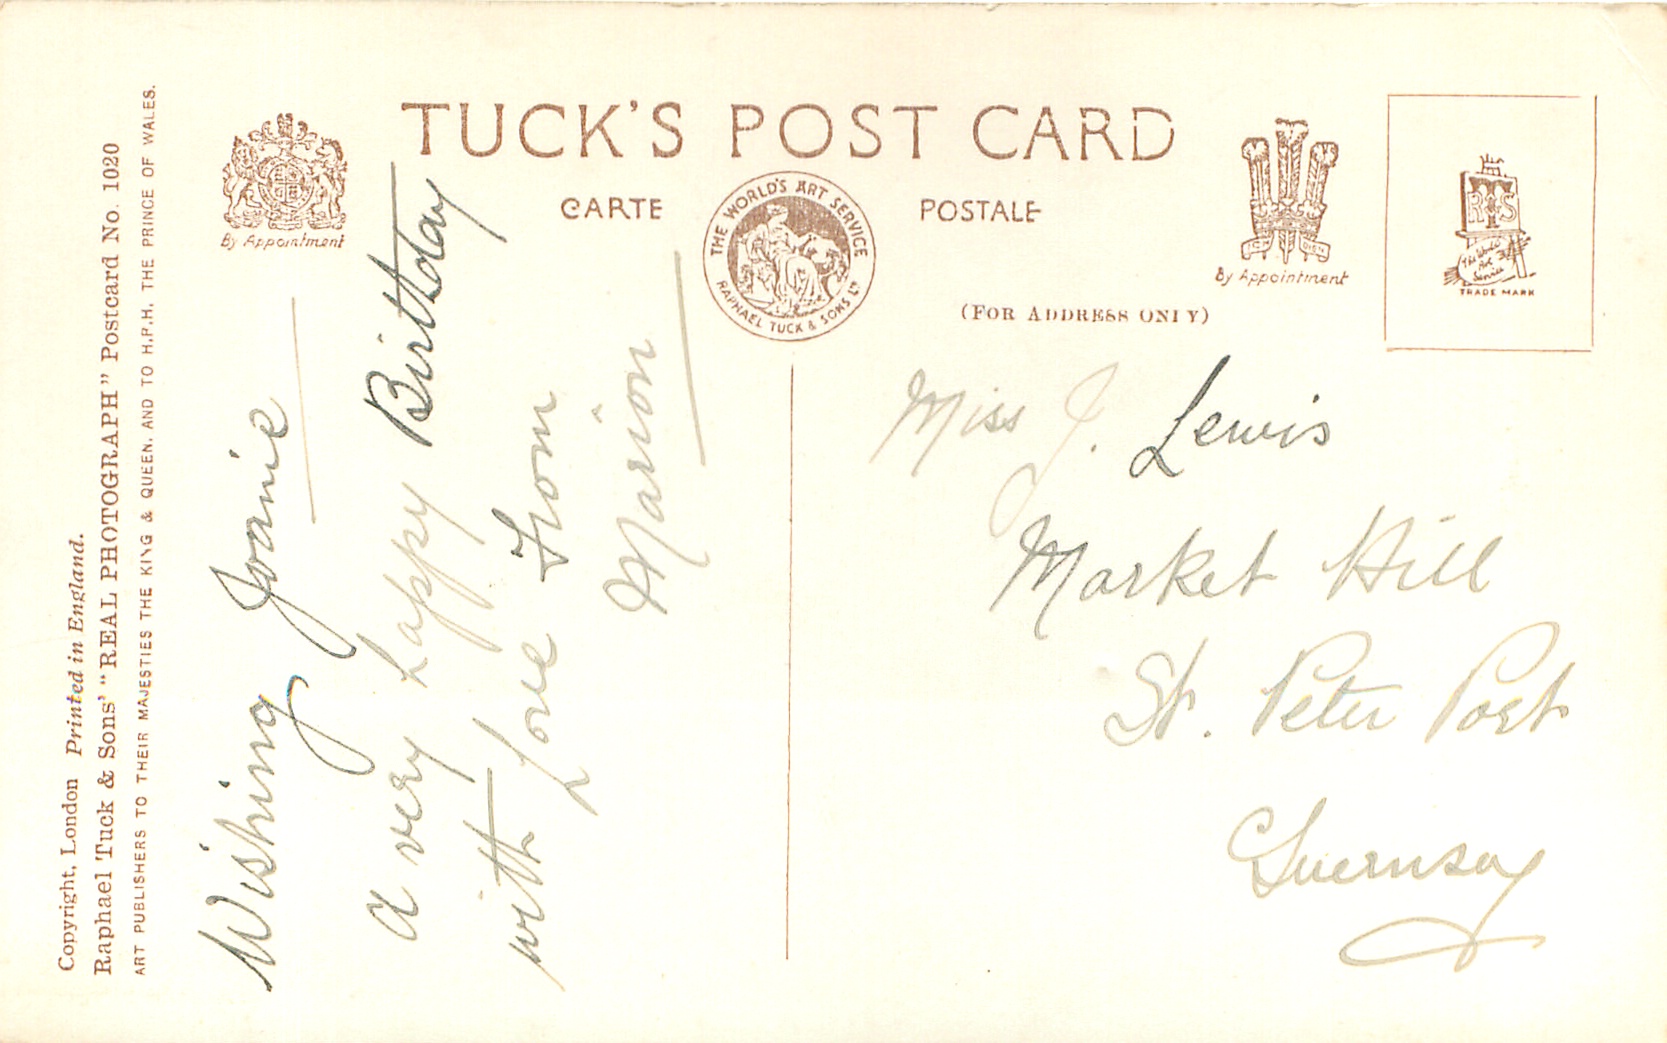 Copyright, London Printed in England.
Raphael Tuck & Sons' "REAL PHOTOGRAPH" Postcard No. 1020
ART PUBLISHERS TO THEIR MAJESTIES THE KING & QUEEN, AND TO H.R.H. THE PRINCE OF WALES.
By Appointment
TUCK'S POST CARD
CARTE POSTALE
THE WORLD'S ART SERVICE
RAPHAEL TUCK & SONS LTD
By Appointment
(FOR ADDRESS ONLY)
RTS
The World's
Art
Service
TRADE MARK
Wishing Joanie
a very happy Birthday
with Love From
Marion
Miss J. Lewis
Market Hill
St. Peter Port
Guernsey